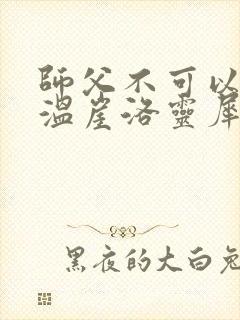 師父不可以
溫崖洛靈犀
黑夜的大白兔